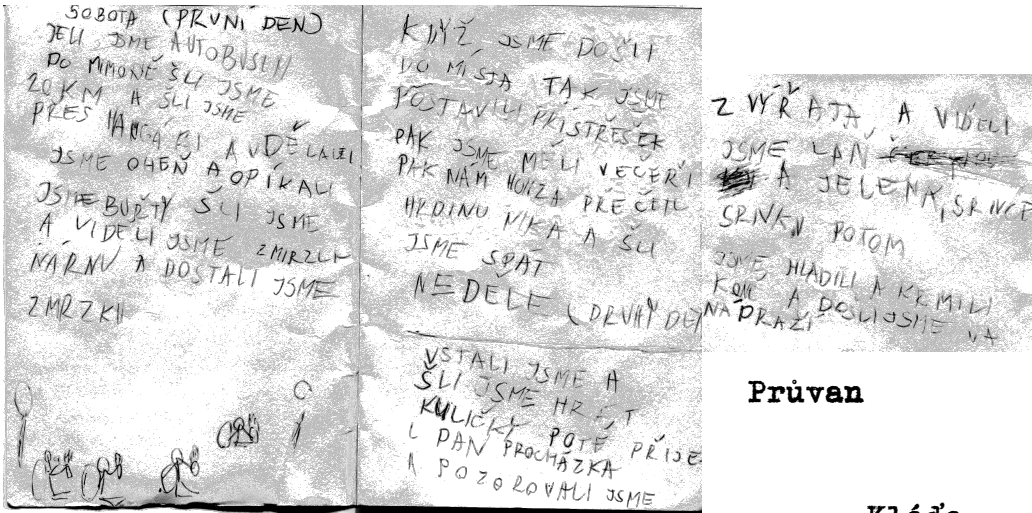 SOBOTA (PRVNÍ DEN)
JELI JSME AUTOBUSEM
DO MIMONĚ ŠLI JSME
20 KM A ŠLI JSME
PŘES HANGÁRI A UDĚLALI
JSME OHEŇ A OPÍKALI
JSME BUŘTY ŠLI JSME
A VIDĚLI JSME ZMIRZLI
NÁRNU A DOSTALI JSME
ZMRZKU
KDYŽ JSME DOŠLI
DO MÍSTA TAK JSME
POSTAVILI PŘÍSTŘEŠEK
PAK JSME MĚLI VEČEŘI
PAK NÁM HONZA PŘEČETL
HRDINU NIKA A ŠLI
JSME SPÁT
NEDELE (DRUHÝ DEN
VSTALI JSME A
ŠLI JSME HRÁT
KULIČKY POTÉ PŘIJE
L PAN PROCHÁZKA
A POZOROVALI JSME
Z VÝŘAJA A VIDĚLI
JSME LAŇ
A JELENA, SRNCE
SRNKU POTOM
JSME HLADILI A KRMILI
KONĚ A DOŠLI JSME NA
NÁDRAŽÍ
Průvan